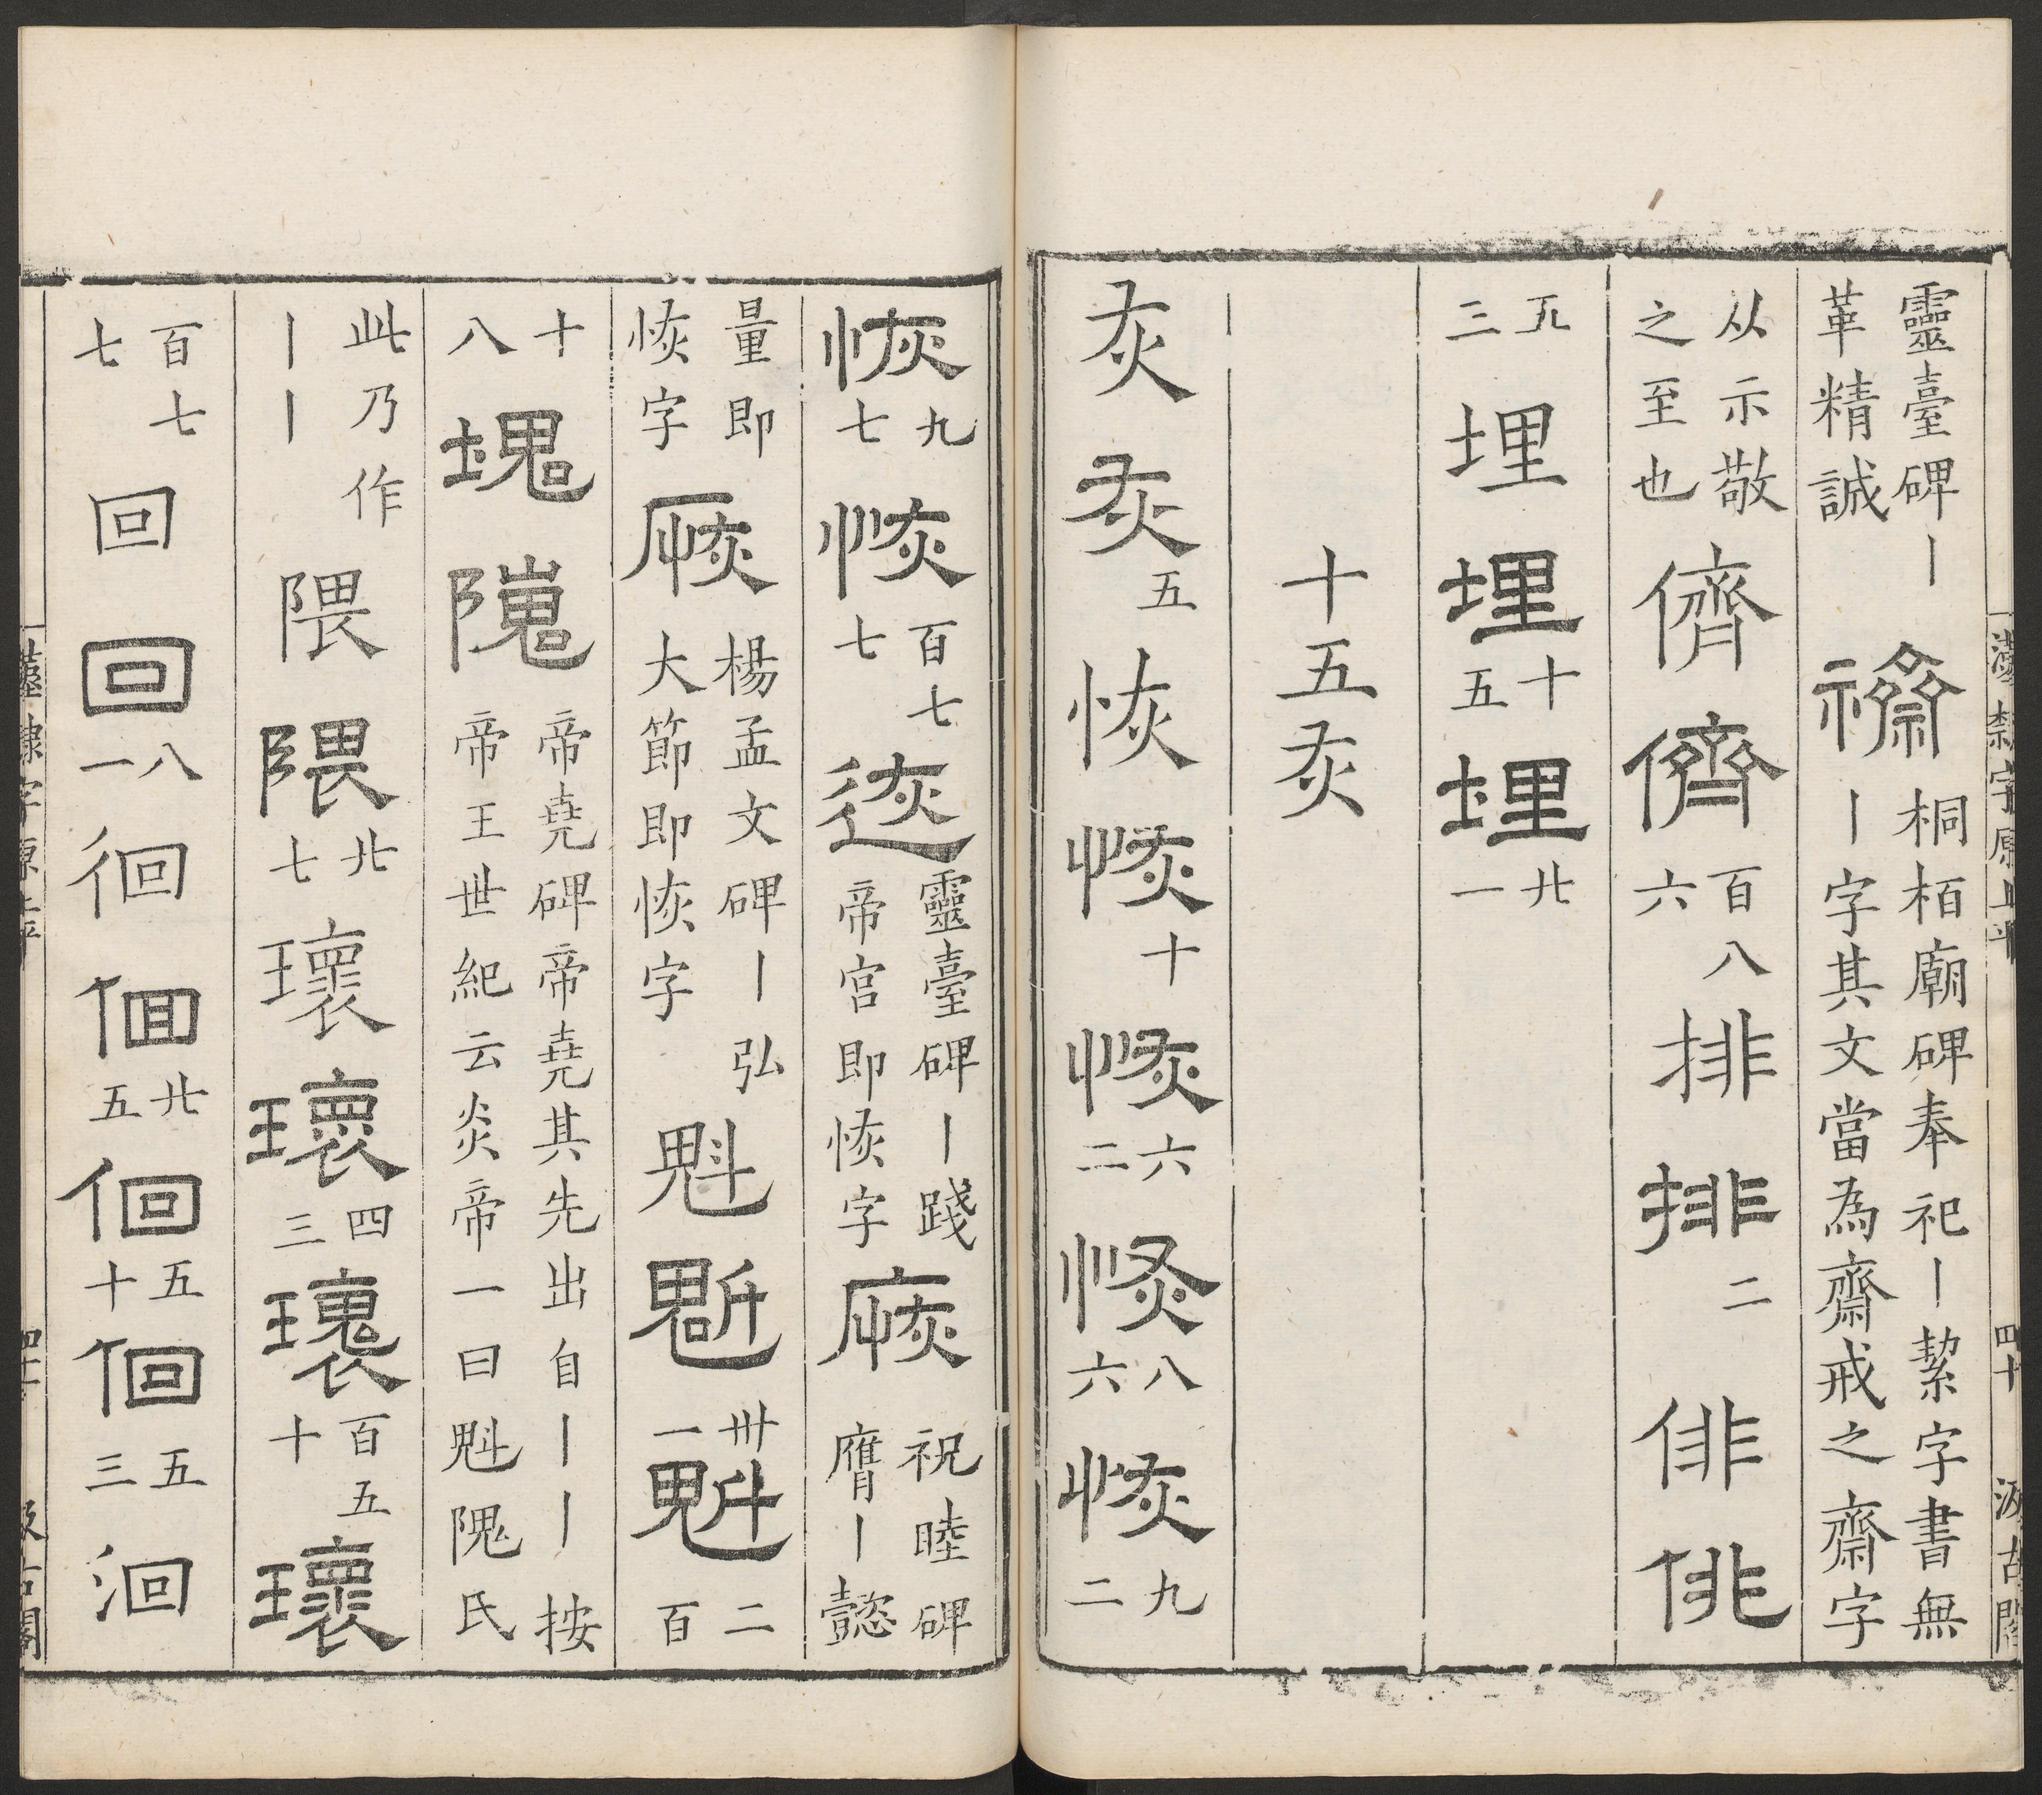 靈臺碑丨
革精誠
禷桐柏廟碑奉祀丨絜字書無
丨字其文當為齋戒之齋字
从示敬
之至也
儕儕百八
六
排排二
俳俳
五
三
埋埋十
五
埋廿
一
十五灰
灰灰五
恢恢十
恢六
二
恢八
六
恢九
二
恢九
七
恢百七
七
靈臺碑丨踐
帝宮即恢字
祝睦碑
膺丨懿
量即
恢字
楊孟文碑丨弘
大節即恢字
魁魁卅
一
魁二
百
十
八
塊隗帝堯碑帝堯其先出自丨丨按
帝王世紀云炎帝一曰魁隗氏
此乃作
丨丨
隈隈廿
七
瓌瓌四
三
瓌百五
十
瓌
百七
七
回回八
一
徊徊廿
五
徊五
十
徊五
三
洄
漢隸字原上平
四十
汲古閣